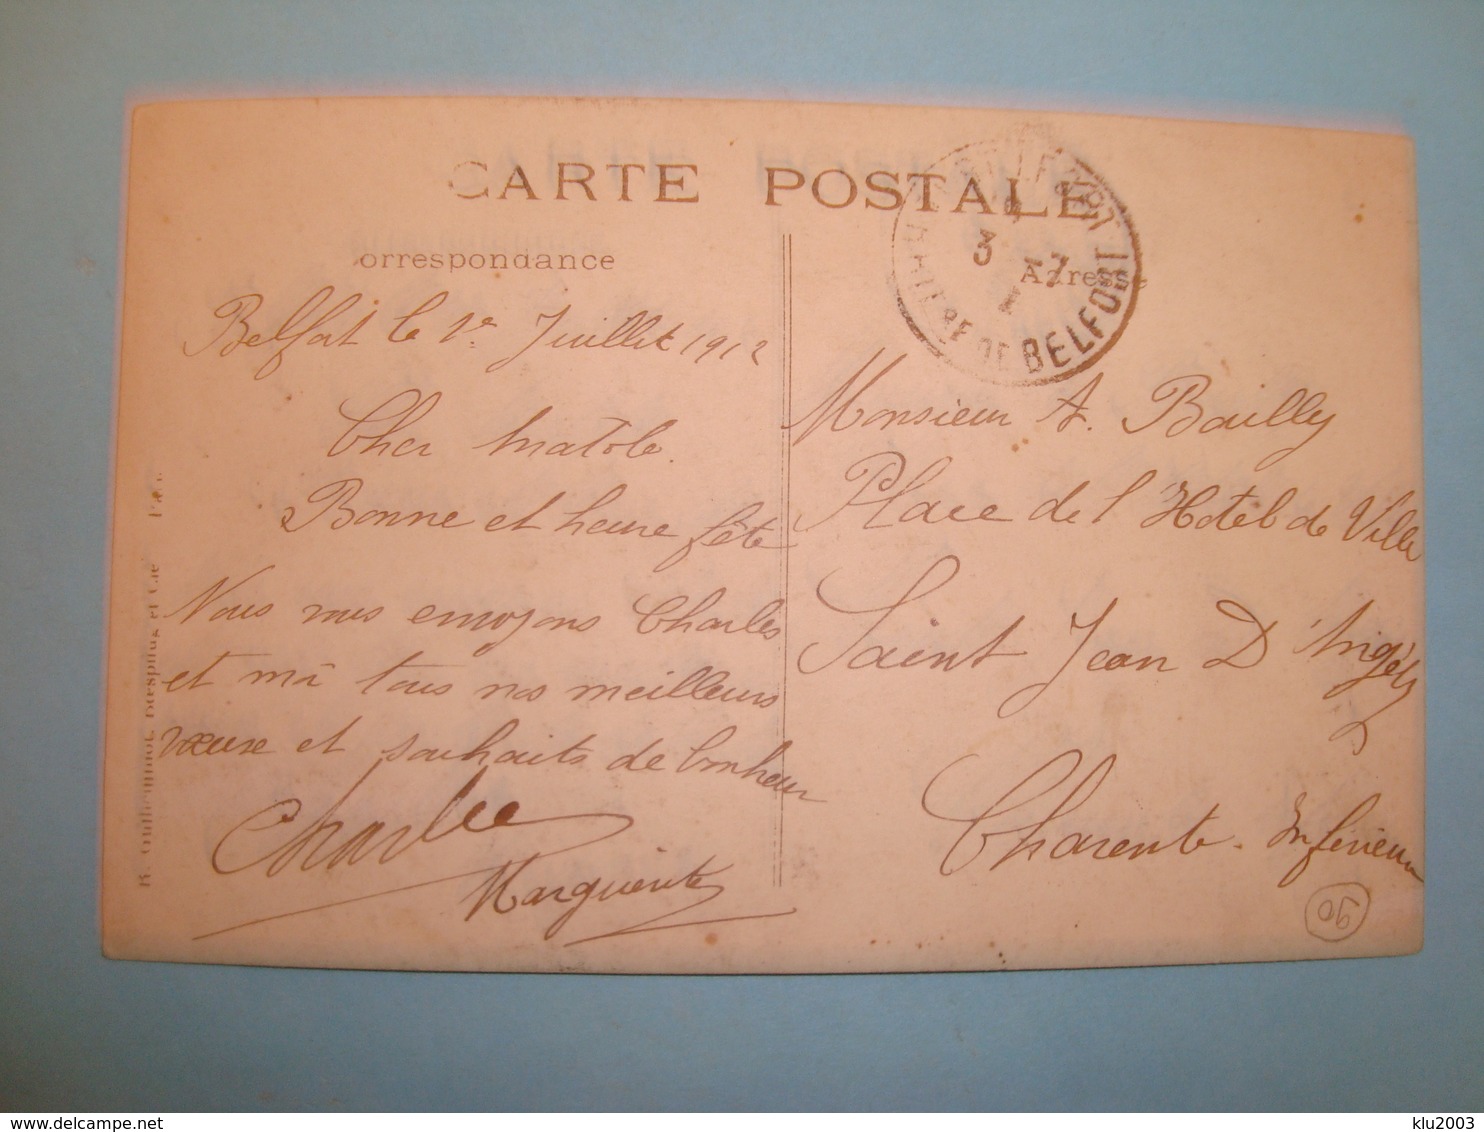 CARTE POSTALE
orrespondance
Adresse
3 -7
BELFORT
DE BELFORT
Belfort le 1er Juillet 1912
Cher Anatole.
Bonne et heure fête
Nous vous envoyons Charles
et moi tous nos meilleurs
vœux et souhaits de bonheur
Charles
Marguerite
Monsieur A. Bailly
Place de l'Hotel de Ville
Saint Jean D'Angély
Charente-Inférieure
90
R. Guilleminot, Bœspflug et Cie
delcampe.net
klu2003